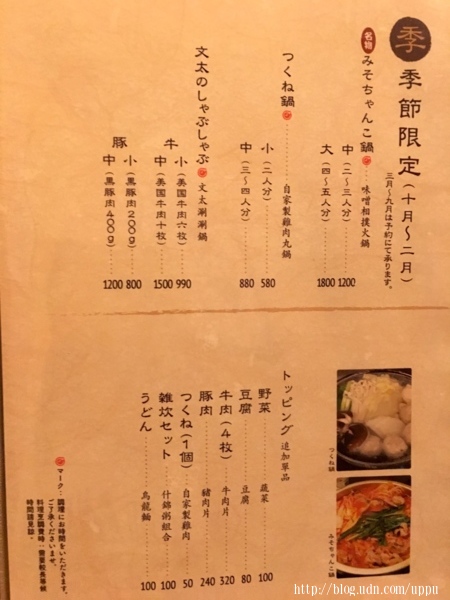 季 季節限定(十月～二月)
三月～九月は予約にて承ります。
名物 みそちゃんこ鍋 味噌相撲火鍋
中(二～三人分) 1200
大(四～五人分) 1800
つくね鍋 自家製雞肉丸鍋
小(二人分) 580
中(三～四人分) 880
文太のしゃぶしゃぶ 文太涮涮鍋
牛
小(美国牛肉六枚) 990
中(美国牛肉十枚) 1500
豚
小(黒豚肉200g) 800
中(黒豚肉400g) 1200
つくね鍋
みそちゃんこ鍋
トッピング 追加單品
野菜 蔬菜 100
豆腐 豆腐 80
牛肉(4枚) 牛肉片 320
豚肉 豬肉片 240
つくね(1個) 自家製雞肉 50
雑炊セット 什錦粥組合 100
うどん 烏龍麵 100
マーク 調理にお時間をいただきます。
ご了承くださいませ。
料理烹調費時、需要較長等候
時間請見諒。
http://blog.udn.com/uppu